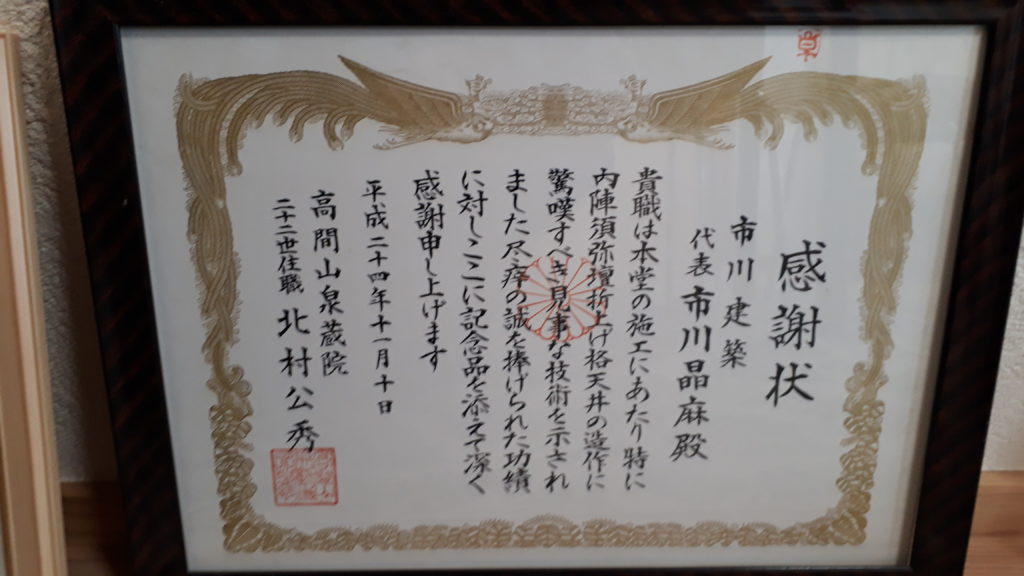 感謝状
市川建築
代表 市川晶麻殿
貴職は本堂の施工にあたり特に
内陣須弥壇折上げ格天井の造作に
驚嘆すべき見事な技術を示され
ました尽瘁の誠を捧げられた功績
に対しここに記念品を添えて深く
感謝申し上げます
平成二十四年十一月十日
高間山泉蔵院
二十二世住職 北村公秀